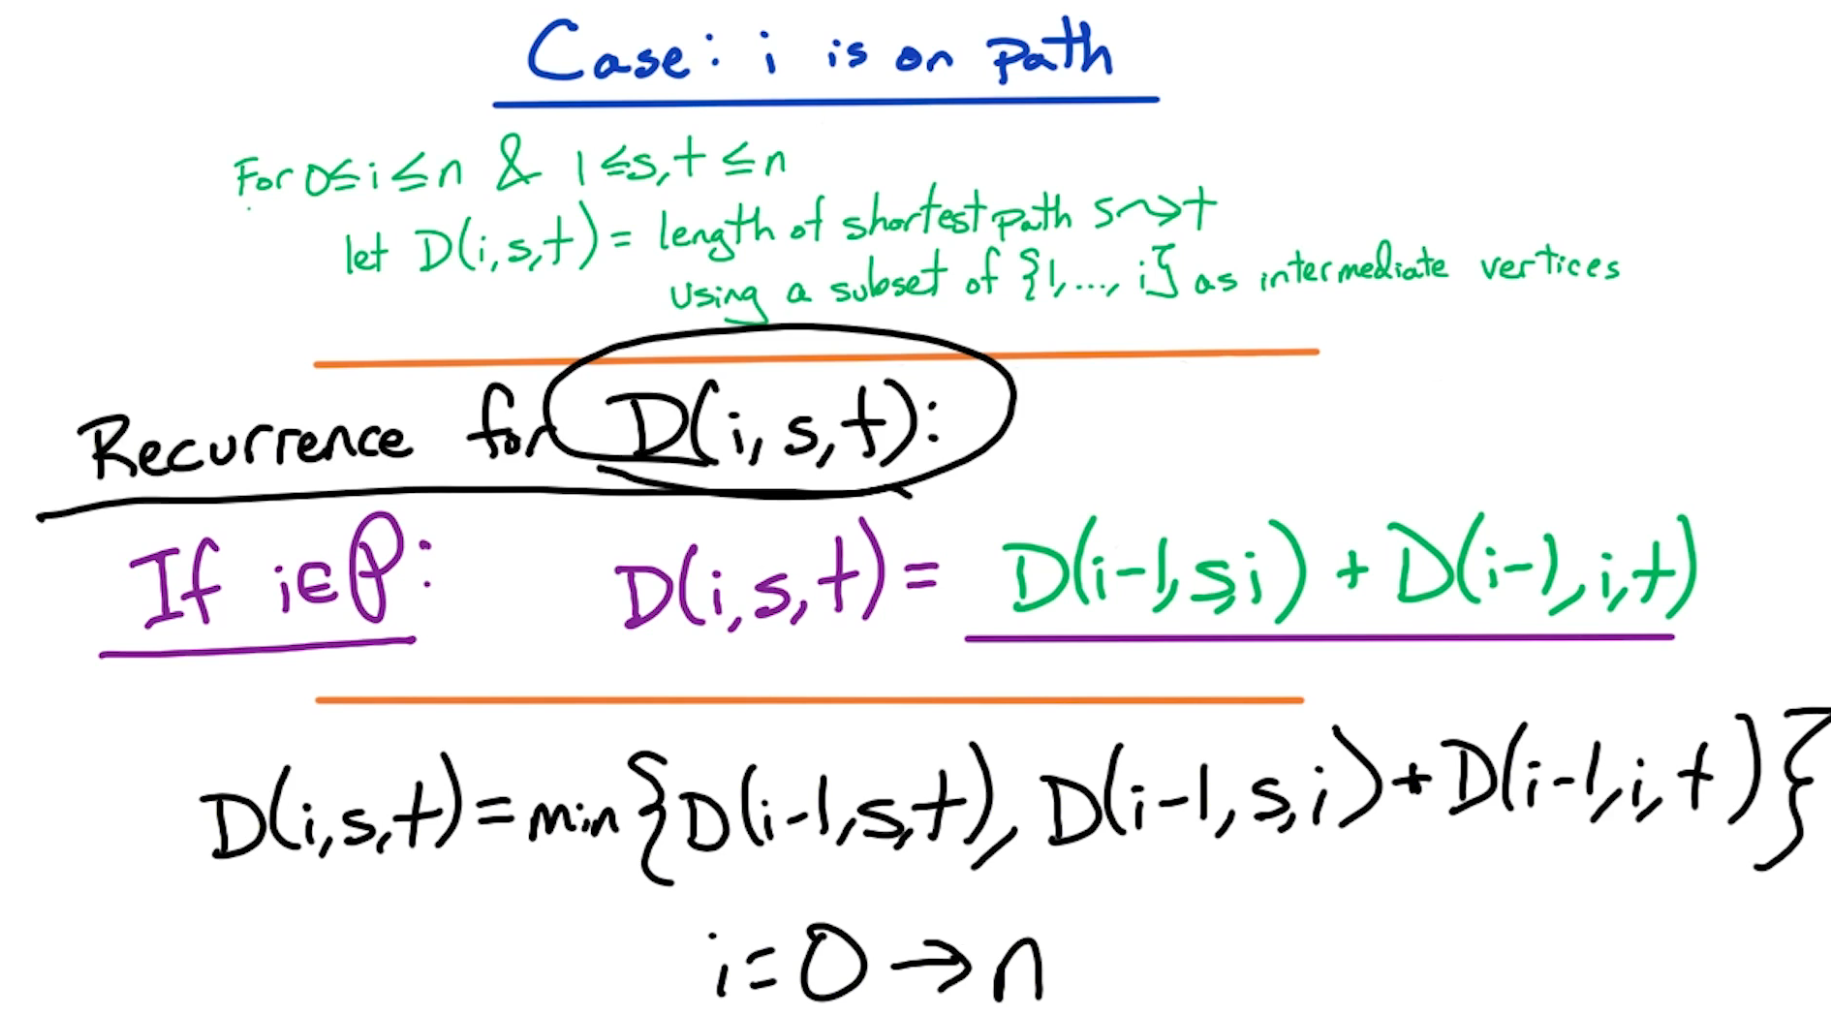 Case: i is on path
For 0≤i≤n & 1≤s,t≤n
let D(i,s,t) = length of shortest path s⇝t
using a subset of {1,..., i} as intermediate vertices
Recurrence for D(i,s,t):
If i∈P: D(i,s,t) = D(i-1,s,i) + D(i-1,i,t)
D(i,s,t) = min{D(i-1,s,t), D(i-1,s,i)+D(i-1,i,t)}
i=0→n